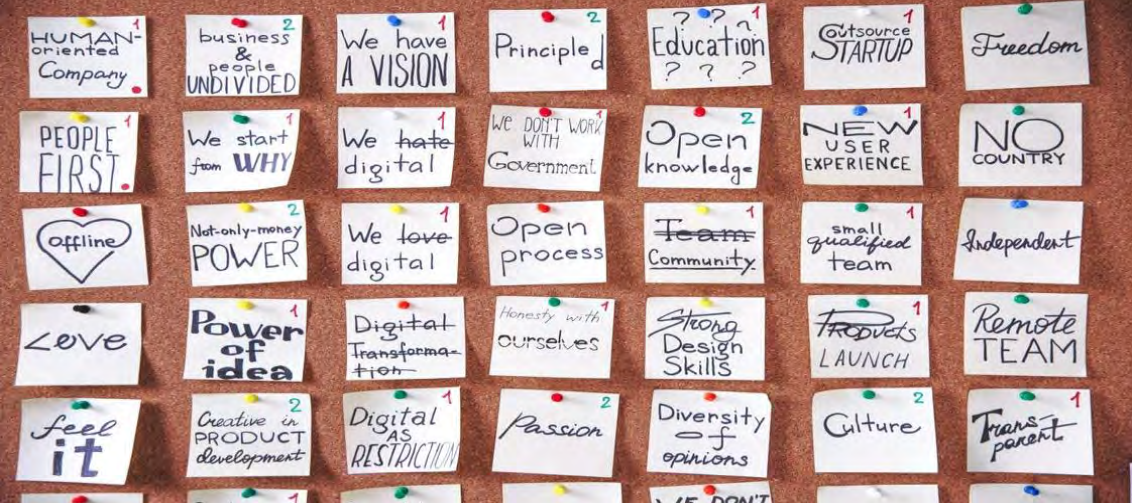 HUMAN-
oriented
Company
2
business
&
people
UNDIVIDED
1
We have
A VISION
2
Principled
1
? ? ?
Education
? ? ?
1
Outsource
STARTUP
Freedom
1
PEOPLE
FIRST.
1
We start
from WHY
1
We hate
digital
1
WE DON'T WORK
WITH
Government
2
Open
knowledge
1
NEW
USER
EXPERIENCE
NO
COUNTRY
offline
2
Not-only-money
POWER
1
We love
digital
Open
process
Team
Community.
1
small
qualified
team
Independent
Love
1
Power
of
idea
Digital
Transforma-
tion
1
Honesty with
ourselves
Strong
Design
Skills
1
Products
LAUNCH
Remote
TEAM
feel
it
2
Creative in
PRODUCT
development
1
Digital
AS
RESTRICTION
2
Passion
Diversity
of
opinions
2
Culture
1
Trans-
parent
1
1
2
WE DON'T